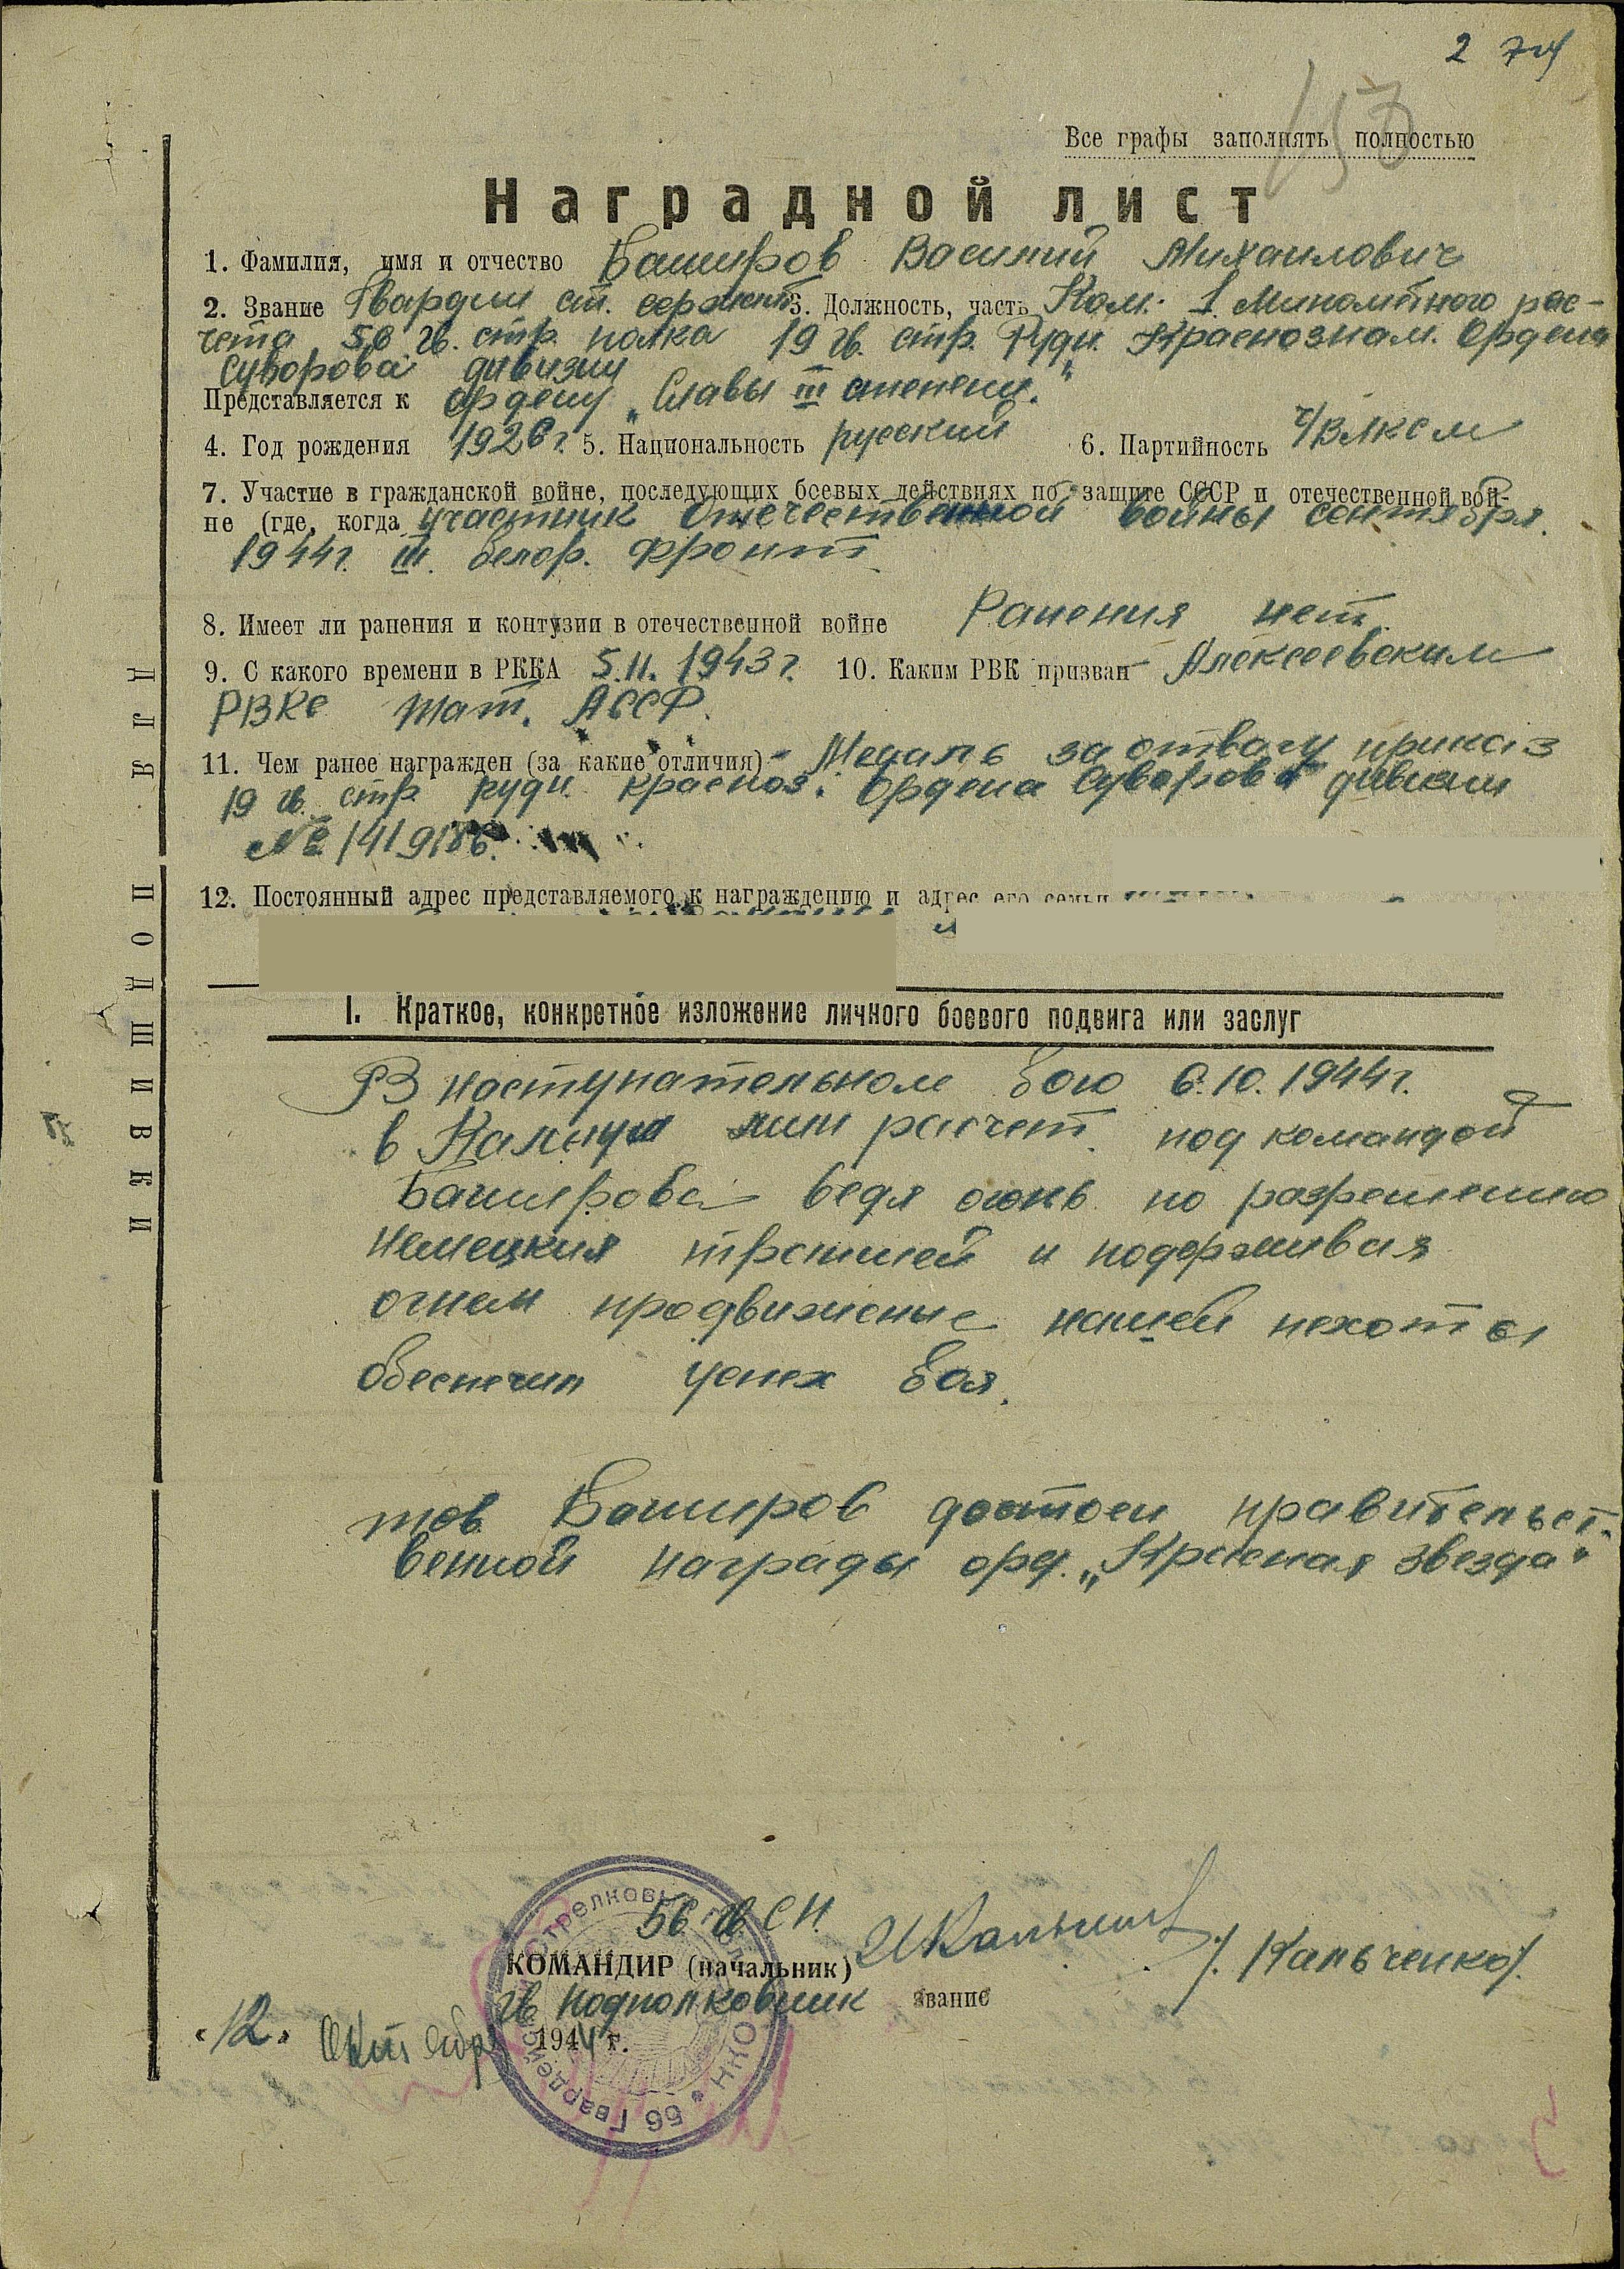 2
Все графы заполнять полностью
Наградной лист
1. Фамилия, имя и отчество Баширов Василий Михайлович
2. Звание Гвардии ст. сержант 3. Должность, часть Ком. 1 минометного рас-
чета 56 гв. стр. полка 19 гв. стр. Рудн. Краснознам. Ордена
Суворова дивизии
Представляется к ордену „Славы III степени."
4. Год рождения 1926 г. 5. Национальность русский 6. Партийность ч/ВЛКСМ
7. Участие в гражданской войне, последующих боевых действиях по защите СССР и отечественной вой-
не (где, когда участник Отечественной войны сентября
1944 г. III белор. фронт
8. Имеет ли ранения и контузии в отечественной войне Ранения нет
9. С какого времени в РККА 5.11.1943 г. 10. Каким РВК призван Алексеевским
РВКе тат. АССР.
11. Чем ранее награжден (за какие отличия) Медаль за отвагу приказ
19 гв. стр. рудн. красноз. Ордена Суворова дивизии
№ 1419186.
12. Постоянный адрес представляемого к награждению и адрес его семьи
I. Краткое, конкретное изложение личного боевого подвига или заслуг
В наступательном бою 6.10.1944 г.
в мин расчет под командой
Баширова ведя огонь по разрешению
немецкия траншей и подерживая
огнем продвижение нашей пехоты
обеспечил успех боя.
тов Баширов достоен правительст-
венной награды орд. „Красная звезда"
56 гв СП.
КОМАНДИР (начальник) /Кальченко/.
гв подполковник звание
„12" Октября 1944 г.
56 Гвардейский Стрелковый полк НКО
ДЛЯ ПОДШИВКИ